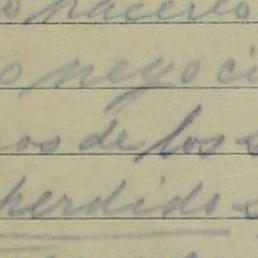 o hacerlo
o negoci
os de los s
perdido